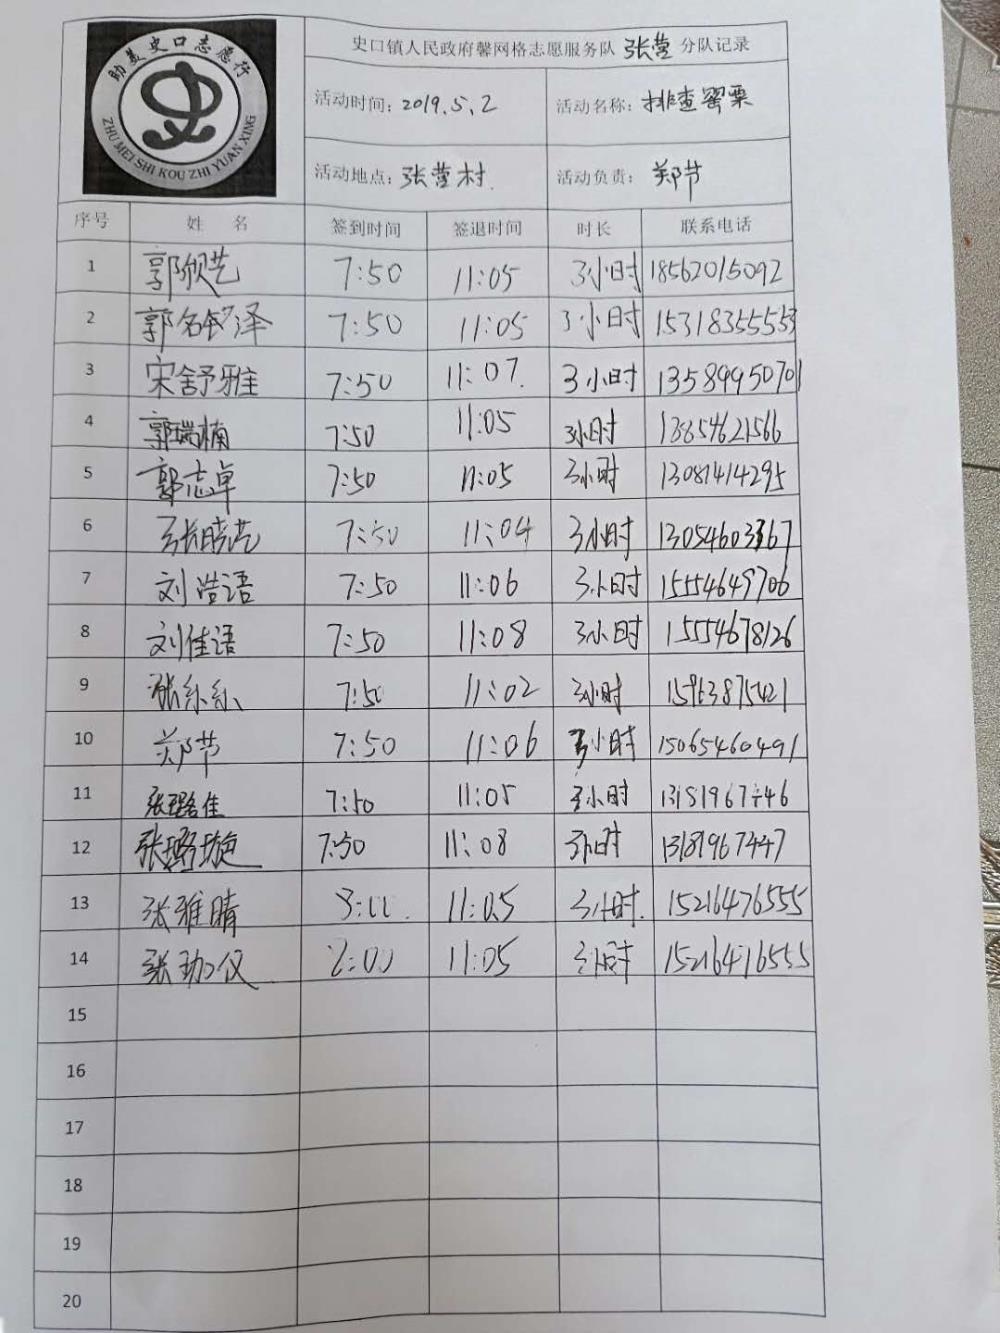 助美史口志愿行
ZHU MEI SHI KOU ZHI YUAN XING
史口镇人民政府馨网格志愿服务队 张营 分队记录
活动时间：2019.5.2 活动名称：排查罂粟
活动地点：张营村. 活动负责：郑节
序号 姓 名 签到时间 签退时间 时长 联系电话
1 郭欣艺 7:50 11:05 3小时 18562015092
2 郭铭泽 7:50 11:05 3小时 15318355553
3 宋舒雅 7:50 11:07. 3小时 13589950701
4 郭瑞楠 7:50 11:05 3小时 13854621566
5 郭志卓 7:50 11:05 3小时 13081414295
6 张晓艺 7:50 11:04 3小时 13054603367
7 刘浩语 7:50 11:06 3小时 15554649706
8 刘佳语 7:50 11:08 3小时 15554678126
9 张 7:50 11:02 3小时 15963875421
10 郑节 7:50 11:06 3小时 15065460491
11 张璐佳 7:50 11:05 3小时
12 张璐璇 7:50 11:08 3小时 13181967447
13 张雅晴 11:05 3小时. 15216476555
14 张珈仪 8:00 11:05 3小时
15
16
17
18
19
20